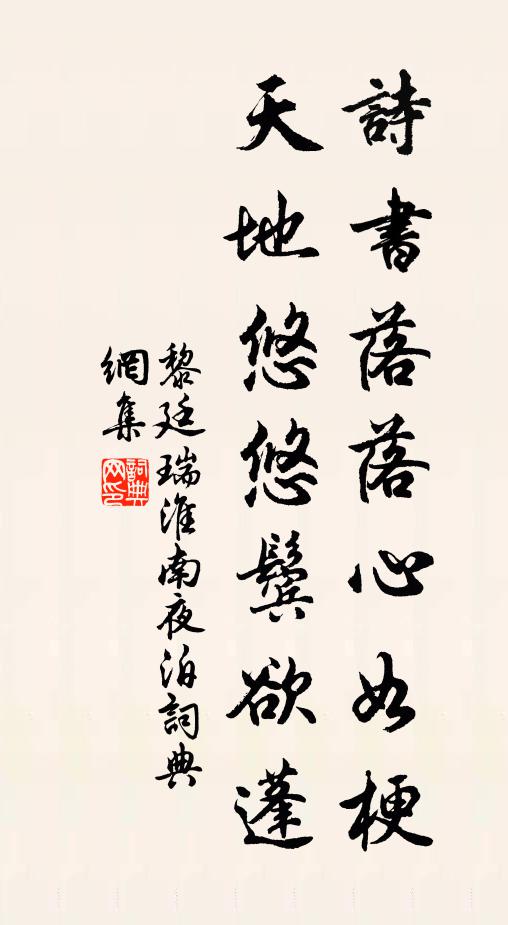 詩書落落心如梗
天地悠悠鬢欲蓬
黎廷瑞淮南夜泊詞典
網集
詞典網印